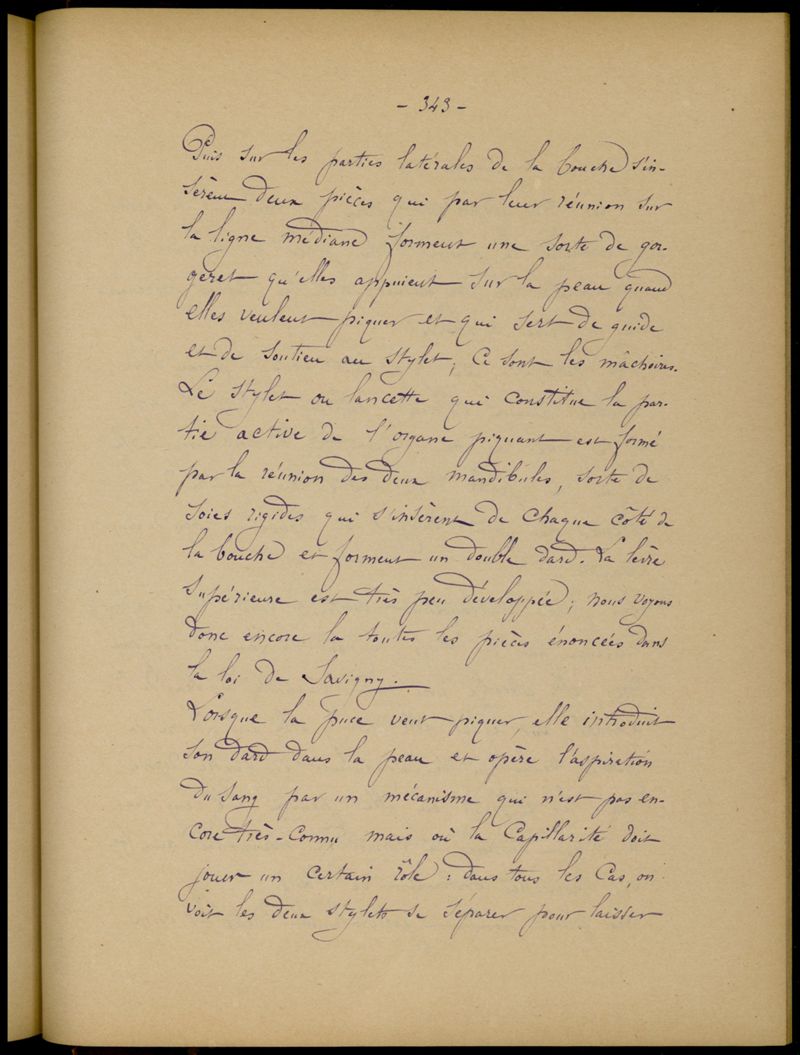 - 343 -
Puis sur les parties latérales de la bouche s'in-
sèrent deux pièces qui par leur réunion sur
la ligne médiane forment une sorte de gor-
geret qu'elles appuient sur la peau quand
elles veulent piquer et qui sert de guide
et de soutien au stylet, ce sont les mâchoires.
Le stylet ou lancette qui constitue la par-
tie active de l'organe piquant est formé
par la réunion des deux mandibules, sorte de
soies rigides qui s'insèrent de chaque côté de
la bouche et forment un double dard. La lèvre
supérieure est très peu développée; nous voyons
donc encore la toutes les pièces énoncées dans
la loi de Savigny.
Lorsque la puce veut piquer, elle introduit
son dard dans la peau et opère l'aspiration
du sang par un mécanisme qui n'est pas en-
core très-connu mais où la capillarité doit
jouer un certain rôle : dans tous les cas, on
voit les deux stylets se séparer pour laisser